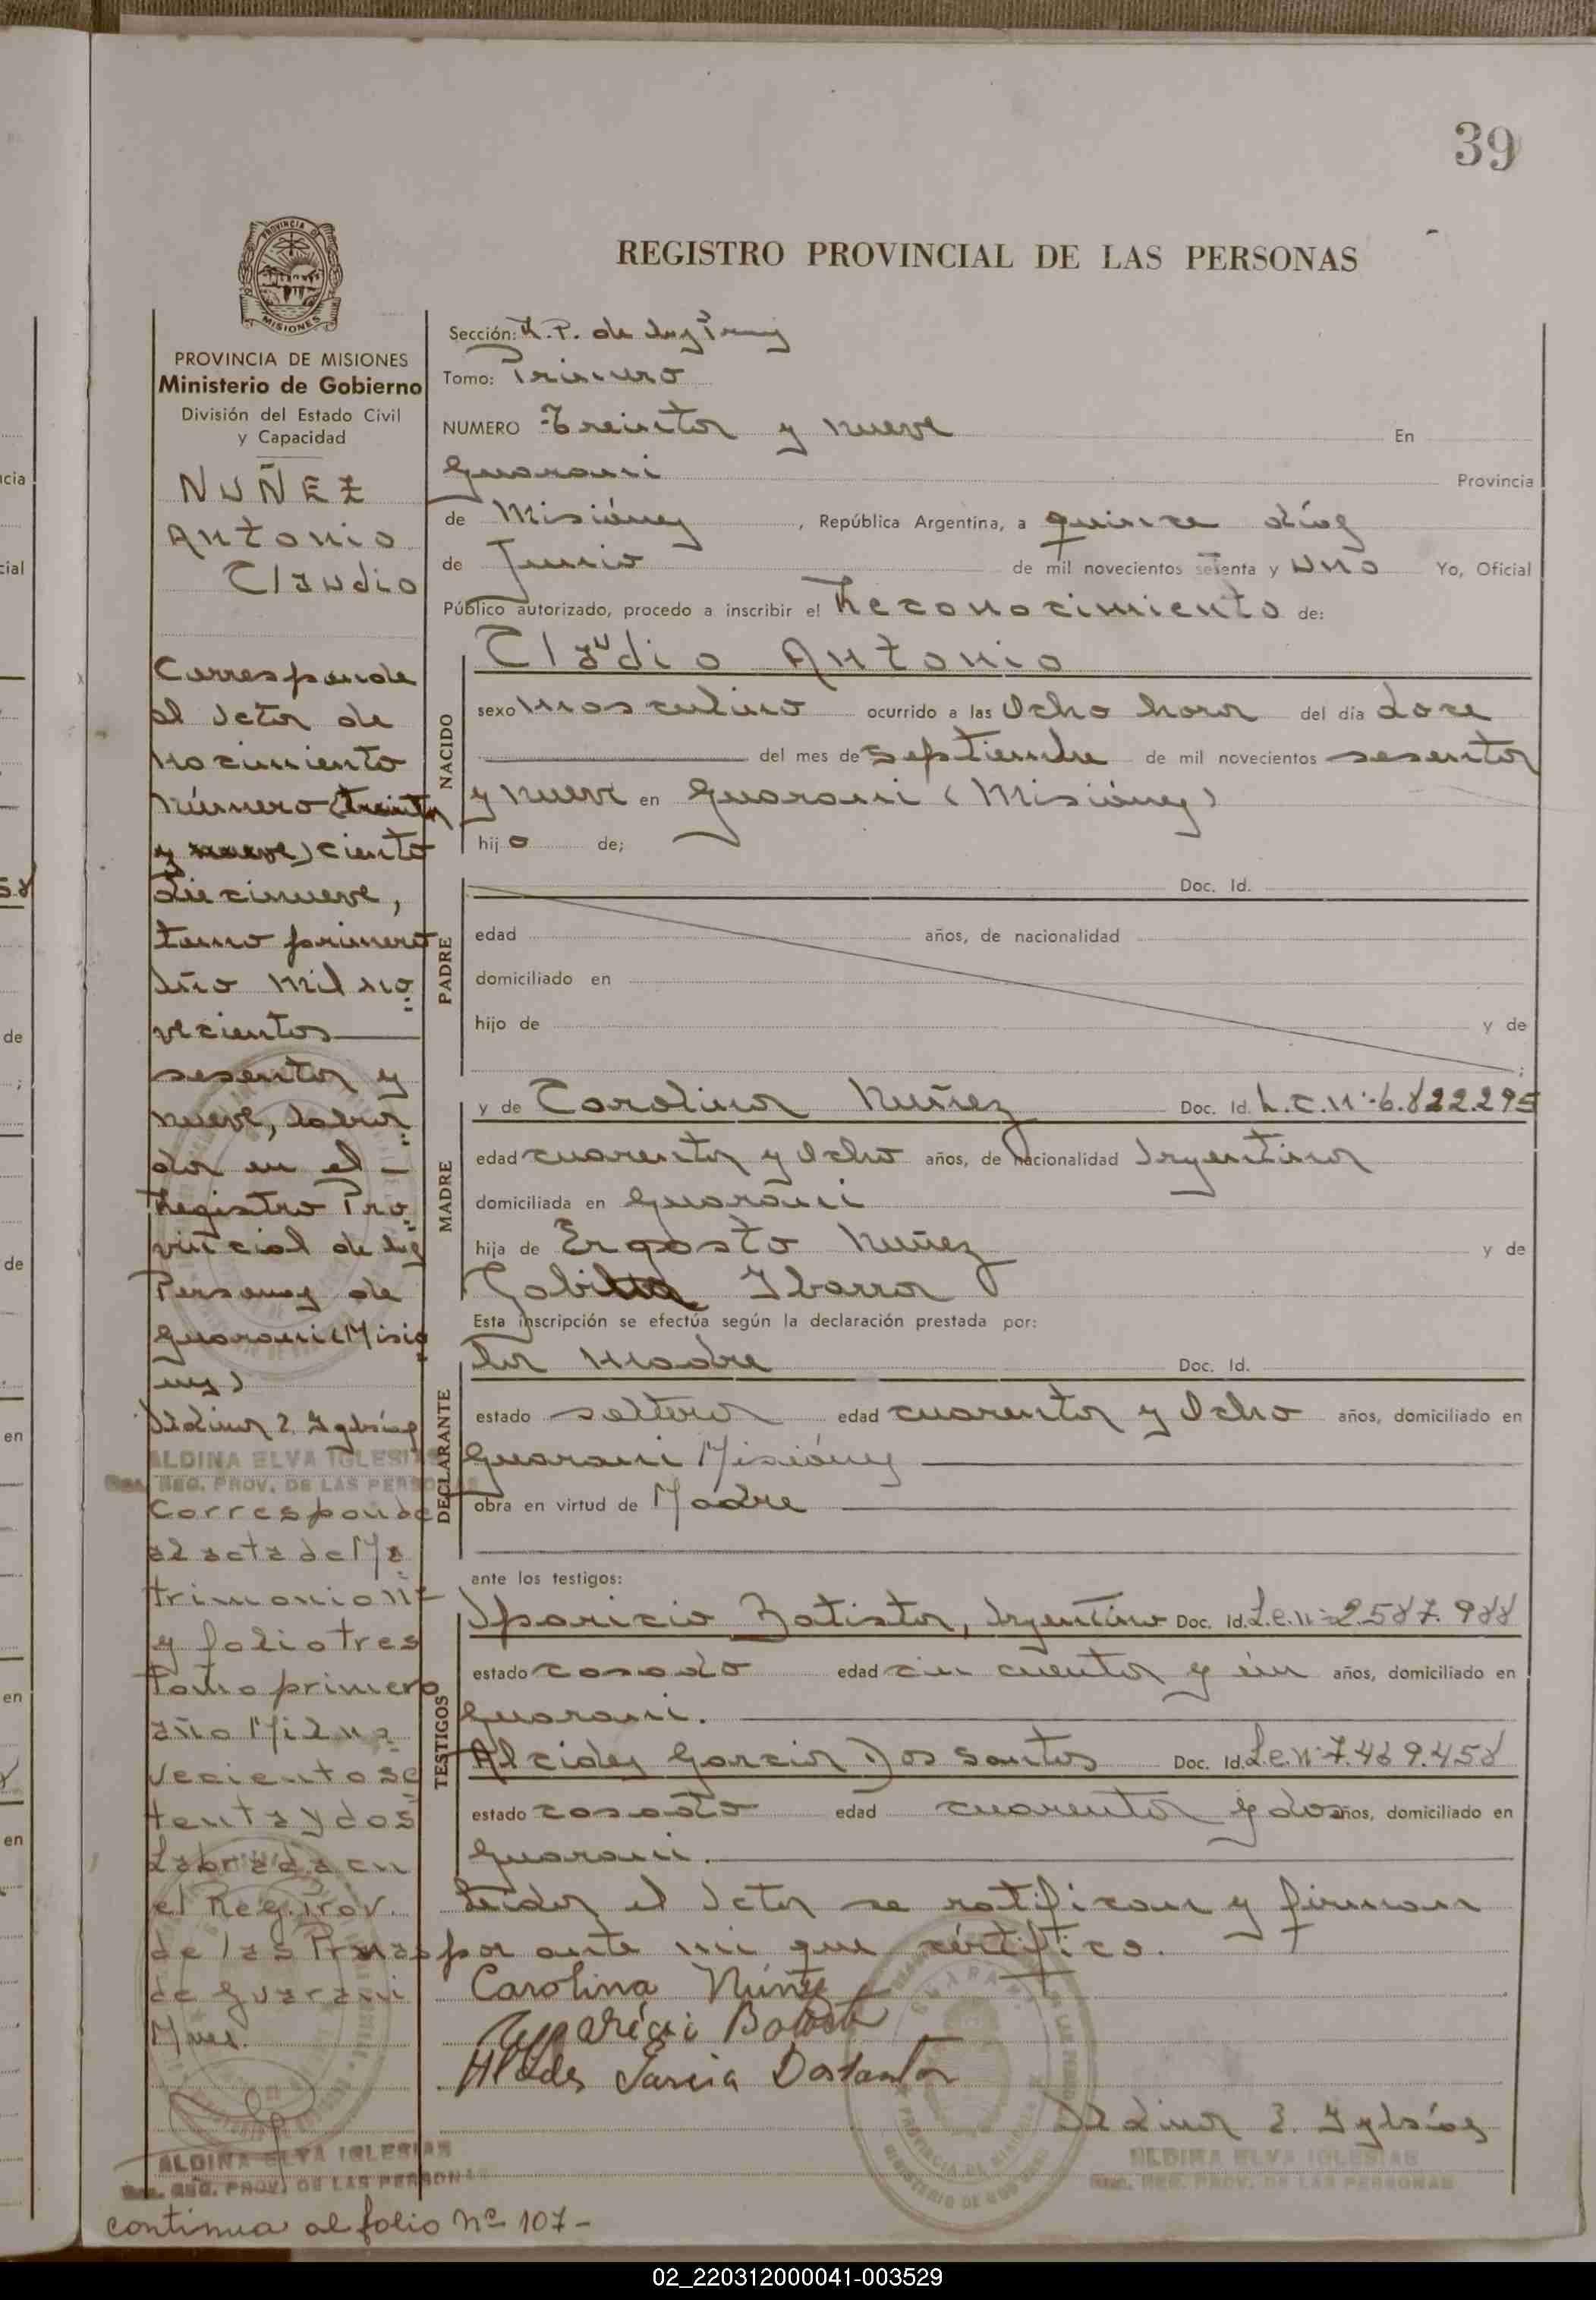 39
REGISTRO PROVINCIAL DE LAS PERSONAS
PROVINCIA DE MISIONES
Ministerio de Gobierno
División del Estado Civil
y Capacidad
NUÑEZ
Antonio
Claudio
Corresponde
al Acta de
nacimiento
número (treinta
y nueve) ciento
diecinueve,
tomo primero
año mil no
vecientos
sesenta y
nueve, labra
da en el
Registro Pro
vincial de las
Personas de
Guarani (Misio
nes)
Aldina E. Iglesias
ALDINA ELVA IGLESIAS
REG. PROV. DE LAS PERSONAS
Corresponde
al acta de Ma
trimonio nº
y folio tres
tomo primero
año Mil no
vecientos se
tenta y dos
Labrada en
el Reg. Prov.
de las Prnas
de Guarani
Mnes.
ALDINA ELVA IGLESIAS
REG. PROV. DE LAS PERSONAS
continua al folio nº 107-
Sección: R.P. de las Prnas
Tomo: Primero
NUMERO Treinta y nueve En
Guarani Provincia
de Misiónes, República Argentina, a quince días
de Junio de mil novecientos setenta y uno Yo, Oficial
Público autorizado, procedo a inscribir el Reconocimiento de:
Claudio Antonio
NACIDO
sexo masculino ocurrido a las Ocho hora del día doce
del mes de septiembre de mil novecientos sesenta
y nueve en Guarani (Misiónes)
hijo de;
PADRE
Doc. Id.
edad años, de nacionalidad
domiciliado en
hijo de y de
;
MADRE
y de Carolina Nuñez Doc. Id. L.C.Nº 6.822.295
edad cuarenta y Ocho años, de nacionalidad Argentina
domiciliada en Guarani
hija de Ergasto Nuñez y de
Ibarra
Esta inscripción se efectúa según la declaración prestada por:
DECLARANTE
la madre Doc. Id.
estado soltera edad cuarenta y Ocho años, domiciliado en
Guarani Misiónes
obra en virtud de Madre
ante los testigos:
TESTIGOS
Aparicio Batista, Argentino Doc. Id. L.E.nº 2.587.988
estado casado edad cincuenta y un años, domiciliado en
Guarani.
Alcides Garcia Dos Santos Doc. Id. L.E.Nº 7.469.458
estado casado edad cuarenta y dos años, domiciliado en
Guarani.
Leida el Acta se ratifican y firman
por ante mi que cértifico.
Carolina Núñez
Aparicio Batista
Alcides Garcia Dosantos
Aldina E. Iglesias
ALDINA ELVA IGLESIAS
REG. PROV. DE LAS PERSONAS
02_220312000041-003529